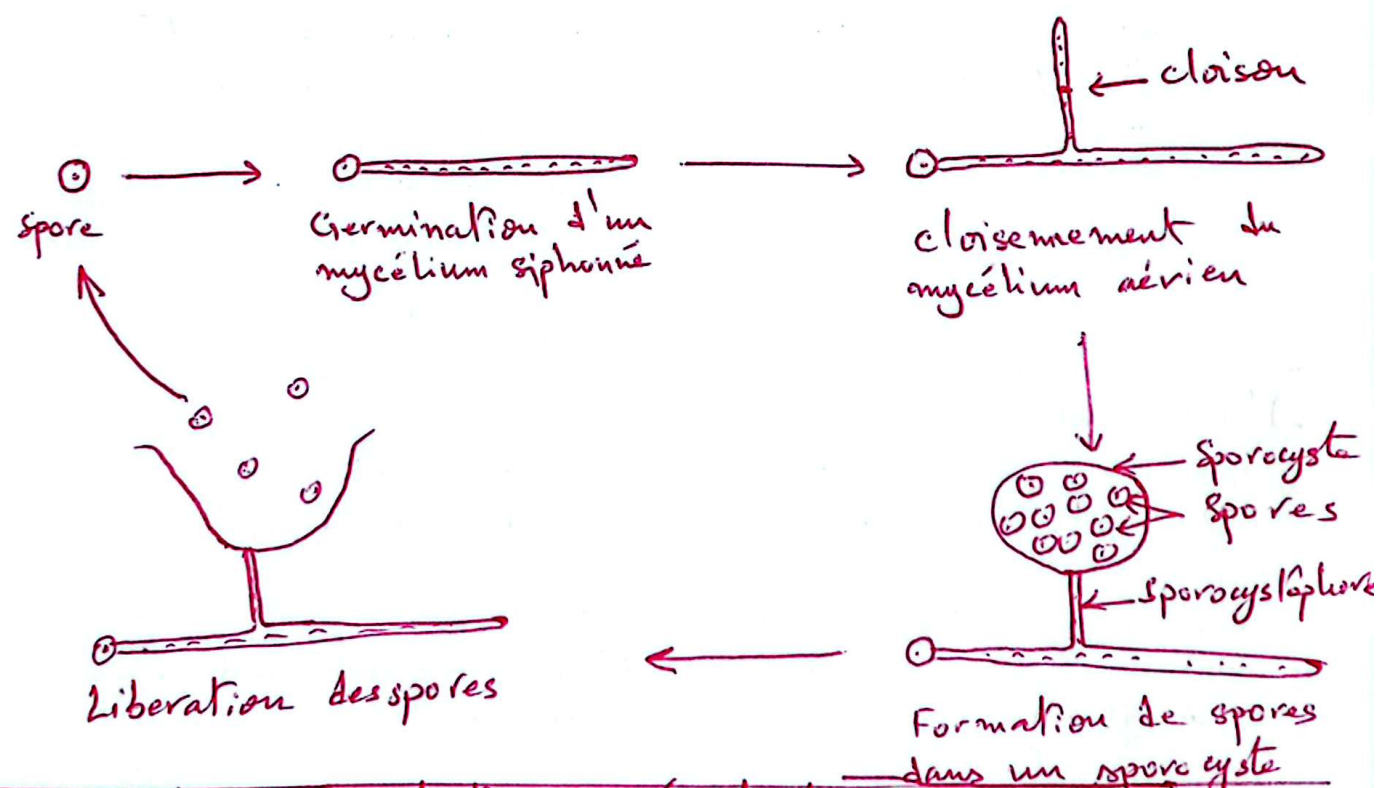 cloison
spore
Germination d'un
mycélium siphonné
cloisennement du
mycélium aérien
sporocyste
spores
sporocystophore
Liberation des spores
Formation de spores
dans un sporocyste